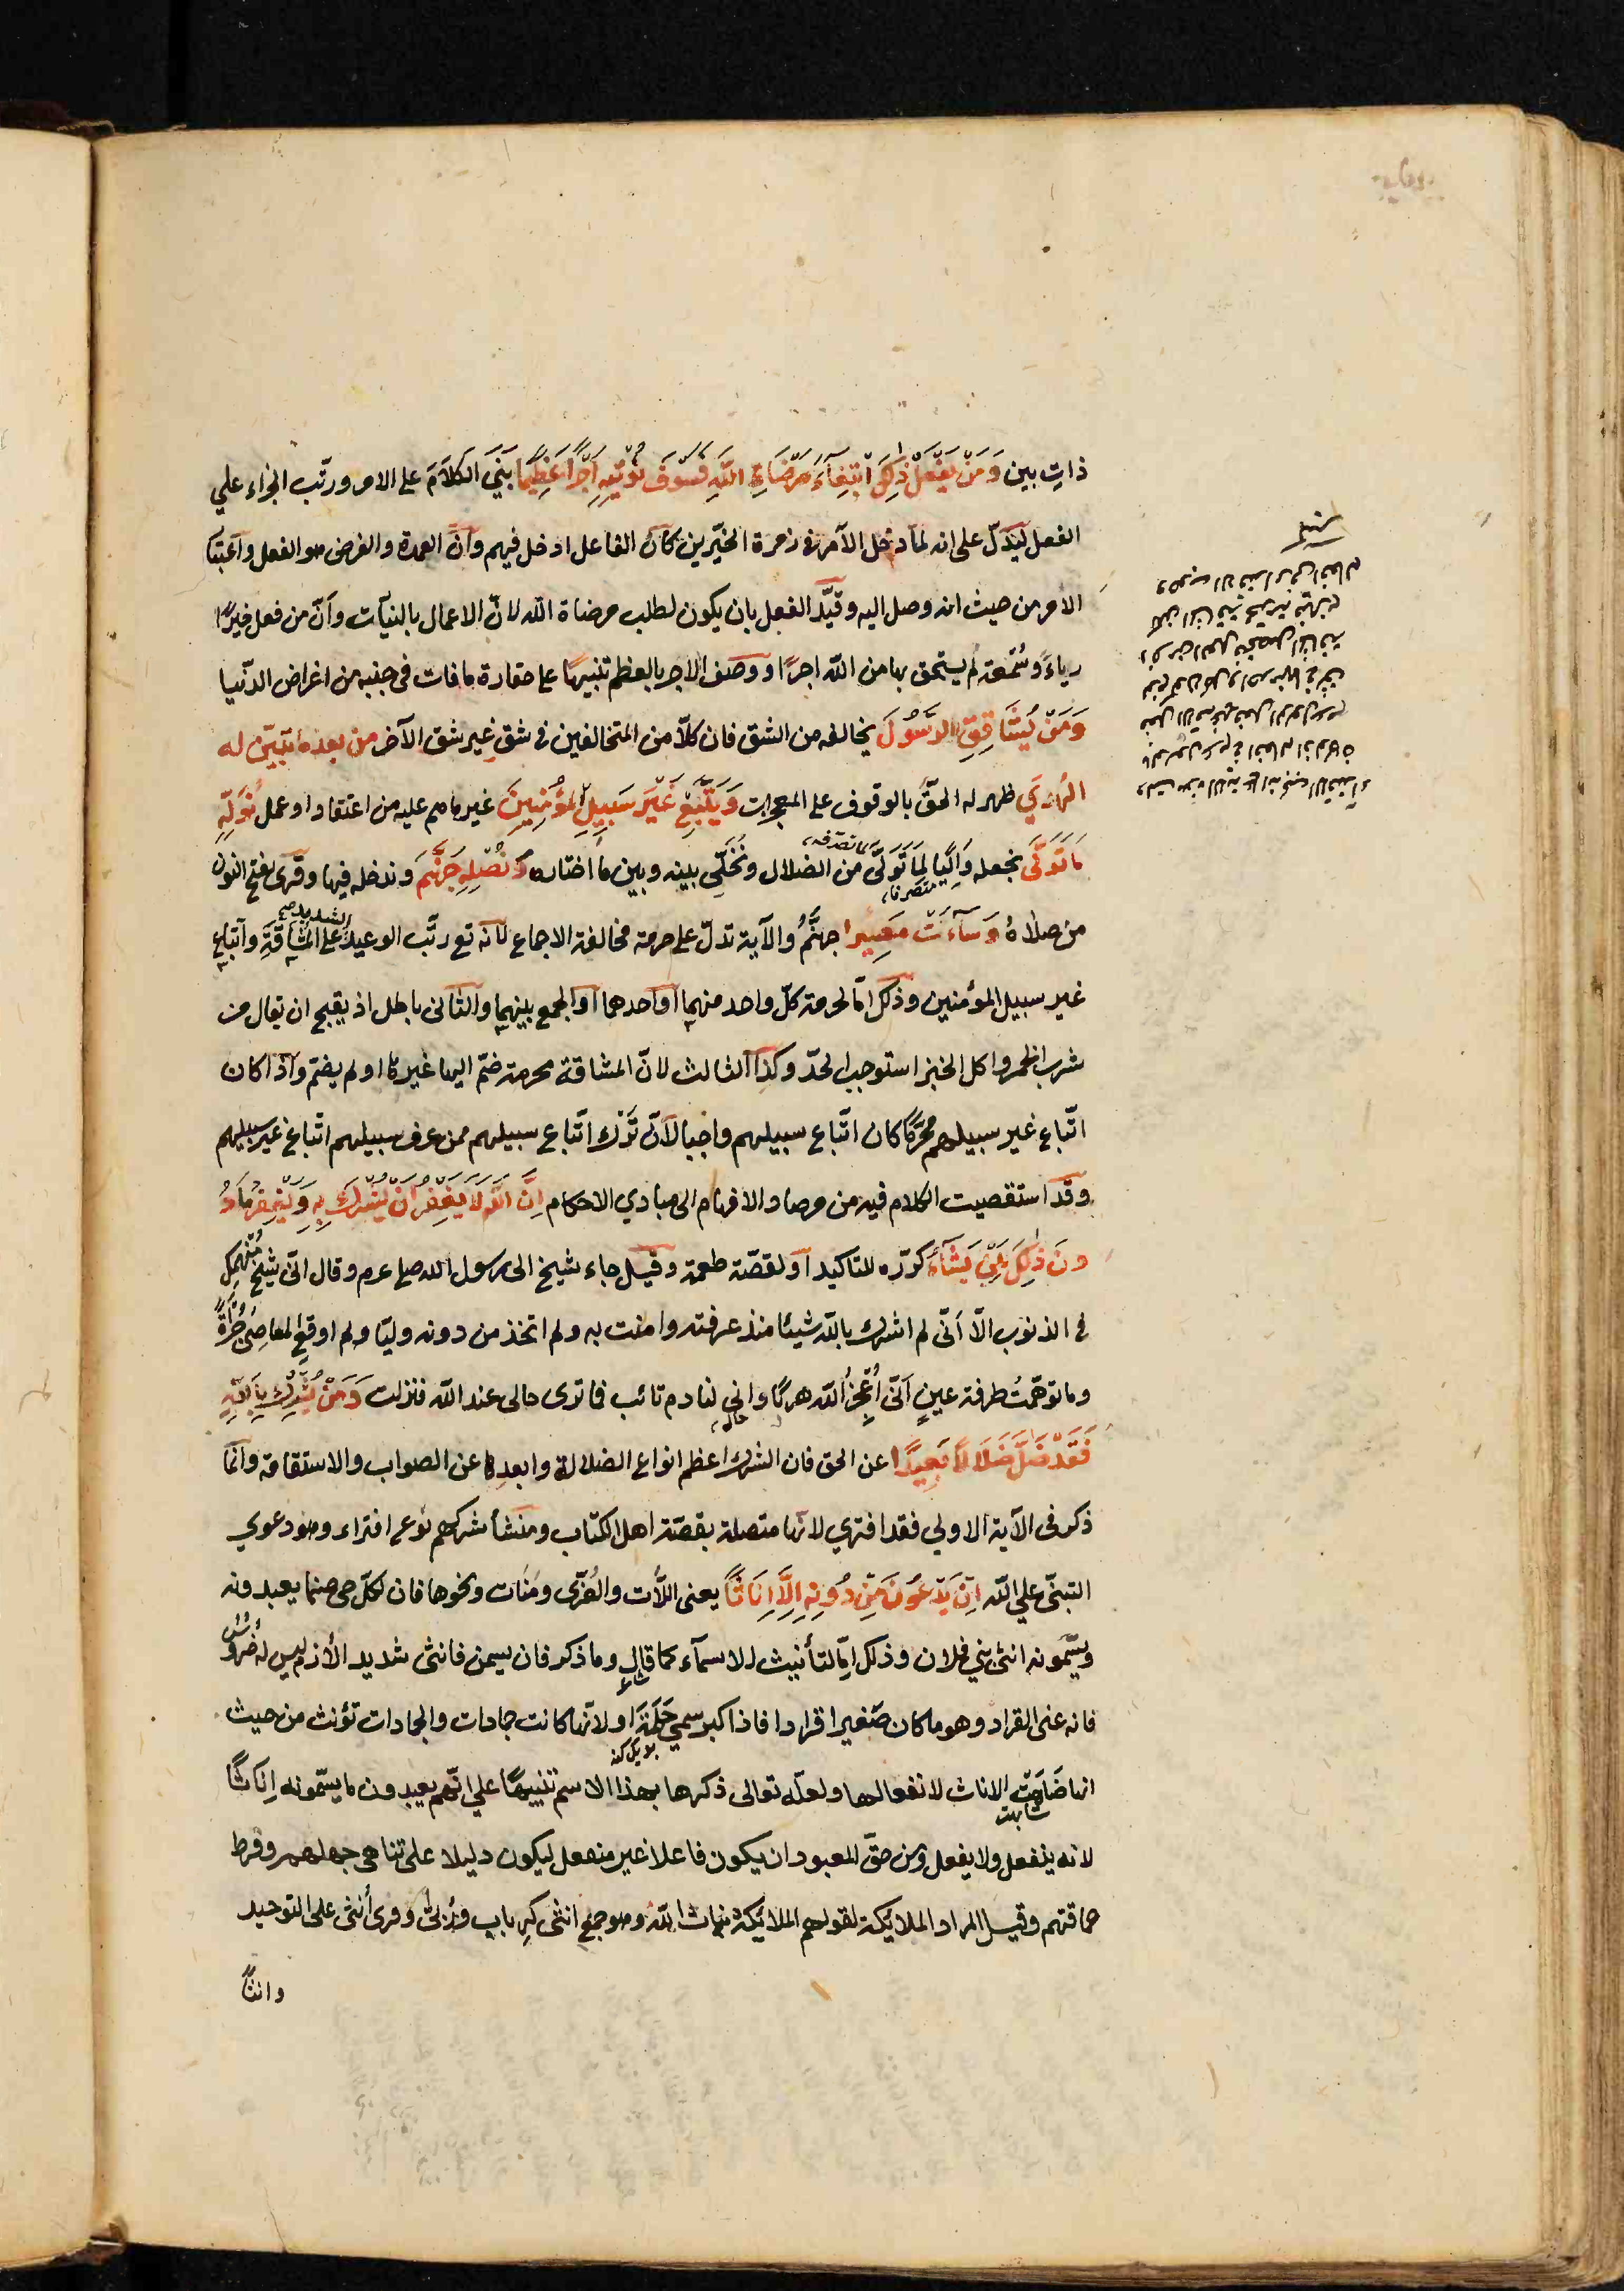 ذاتِ بين وَمَنْ يَفْعَلْ ذٰلِكَ ابْتِغَآءَ مَرْضَاةِ اللّٰهِ فَسَوْفَ نُؤْتِيْهِ اَجْرًا عَظِيمًا بَنَى الكلامَ على الامر ورتّب الجزاء علي
الفعل ليدلّ على انه لما دخل الآمر في زمرة الخيّرين كان الفاعل ادخل فيهم وانّ العمدة والغرض هو الفعل واعتبا
الأمر من حيث انه وصل اليه وقيَّد الفعل بان يكون لطلب مرضاة الله لانّ الاعمال بالنيآت وانّ من فعل خيرًا
رياءً وسُمْعة لم يستحق بها من الله اجرًا ووصف الاجر بالعظم تنبيهًا على حقارة ما فات في جنبه من اغراض الدّنيا
وَمَنْ يُشَاقِقِ الرَّسُولَ يخالفه من الشق فان كلاّ من المتخالفين في شقٍ غير شق الآخر من بعد ما تبيّن له
الهُدٰي ظهر له الحقّ بالوقوف على المعجزات وَيَتَّبِعْ غَيْرَ سَبِيلِ المُؤْمِنِينَ غير ما هم عليه من اعتقاد او عمل نُوَلِّهِ
مَا تَوَلّٰى نجعله وَالِيًا لِمَا تَوَلَّى من الضلال ونُخَلِّي بينه وبين ما اختاره وَنُصْلِهِ جَهَنَّمَ وندخله فيها وقرى بفتح النون
من صلاهُ وَسَآءَتْ مَصِيرًا جهنَّمُ والآية تدلّ على حرمة مخالفة الاجماع لانّه تع رتّب الوعيد الشديد على المشاقّةِ واتّباع
غير سبيل المؤمنين وذلك امّا لحرمة كلّ واحد منهما او احدهما او الجمع بينهما والثانى باطل اذ يقبح ان يقال من
شرب الخمر واكل الخبز استوجب الحدّ وكذا الثالث لانّ المشاقة محرمة ضمّ اليها غيرها او لم يضمّ واذا كان
اتّباع غير سبيلهم محرَّمًا كان اتّباع سبيلهم واجبا لانّ تَرْك اتّباع سبيلهم ممن عرف سبيلهم اتّباع غير سبيلهم
وقد استقصيت الكلام فيه من مرصاد الافهام الى مبادي الاحكام اِنَّ اللّٰهَ لَا يَغْفِرُ اَنْ يُشْرَكَ بِهِ وَيَغْفِرُ مَا دُ
ونَ ذٰلِكَ لِمَنْ يَشَآءُ كرّره للتاكيد او لقصّة طعمة وقيل جاء شيخ الى رسول الله صلى عرم وقال انّي شيخٌ مُنْهَمِكٌ
في الذنوب الاّ اَنّي لم اشرك بالله شيئا منذ عرفته وامنت به ولم اتخذ من دونه وليّا ولم اوقع المعاصى جُرْأةً
وما توهّمتُ طرفة عينٍ اَنّى اُعْجِزُ الله هربًا واني لنادم تائب فما ترى حالى عند الله فنزلت وَمَنْ يُشْرِكْ بِاللّٰهِ
فَقَدْ ضَلَّ ضَلَالًا بَعِيدًا عن الحق فان الشرك اعظم انواع الضلالة وابعدها عن الصواب والاستقامة وانّما
ذكر فى الآية الاولي فقد افتري لانّها متصلة بقصّة اهل الكتاب ومنشأ شركهم نوع افتراء وهو دعوي
التبنّى علي الله اِنْ يَدْعُوْنَ مِنْ دُونِهِ اِلَّا اِنَاثًا يعنى اللاَّت والعُزّى ومَنَات ونحوها فان لكلّ حى صنما يعبدونه
ويسمّونه انثى بنى فلان وذلك امّا لتأنيث الاسمآء كما قال وما ذكر فان يسمن فانثى شديد الأزم ليس له ضُرُوُس
فانه عنى القراد وهو ما كان صَغيرا قرادا فاذا كبر سمي حَلَمَة او لانّها كانت جمادات والجمادات تؤنث من حيث
انها ضَاهَتِ الاناث لانفعالها ولعلّه توالى ذكرها بهذا الاسم تنبيهًا علي انّهم يعبدون ما يسمّونه اِنَاثًا
لانه ينفعل ولا يفعل ومن حقّ المعبود ان يكون فاعلا غير منفعل ليكون دليلا على تناهى جهلهم وفرط
حماقتهم وقيل المراد الملايكة لقولهم الملائكة بنات الله وهو جمع انثى كرباب ورُبّى وقرى أنثى على التوحيد
وانثًا